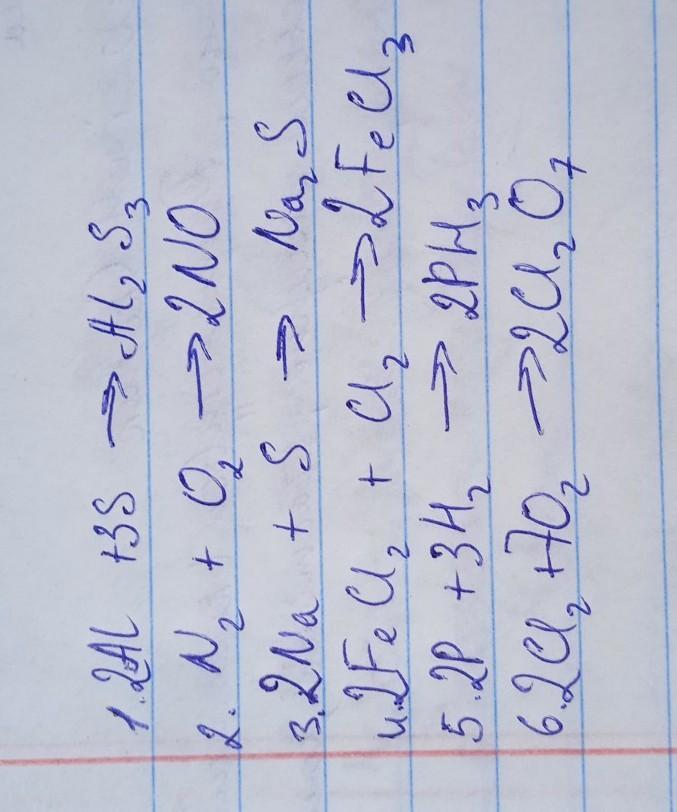 1. 2Al + 3S → Al₂S₃
2. N₂ + O₂ → 2NO
3. 2Na + S → Na₂S
4. 2FeCl₂ + Cl₂ → 2FeCl₃
5. 2P + 3H₂ → 2PH₃
6. 2Cl₂ + 7O₂ → 2Cl₂O₇